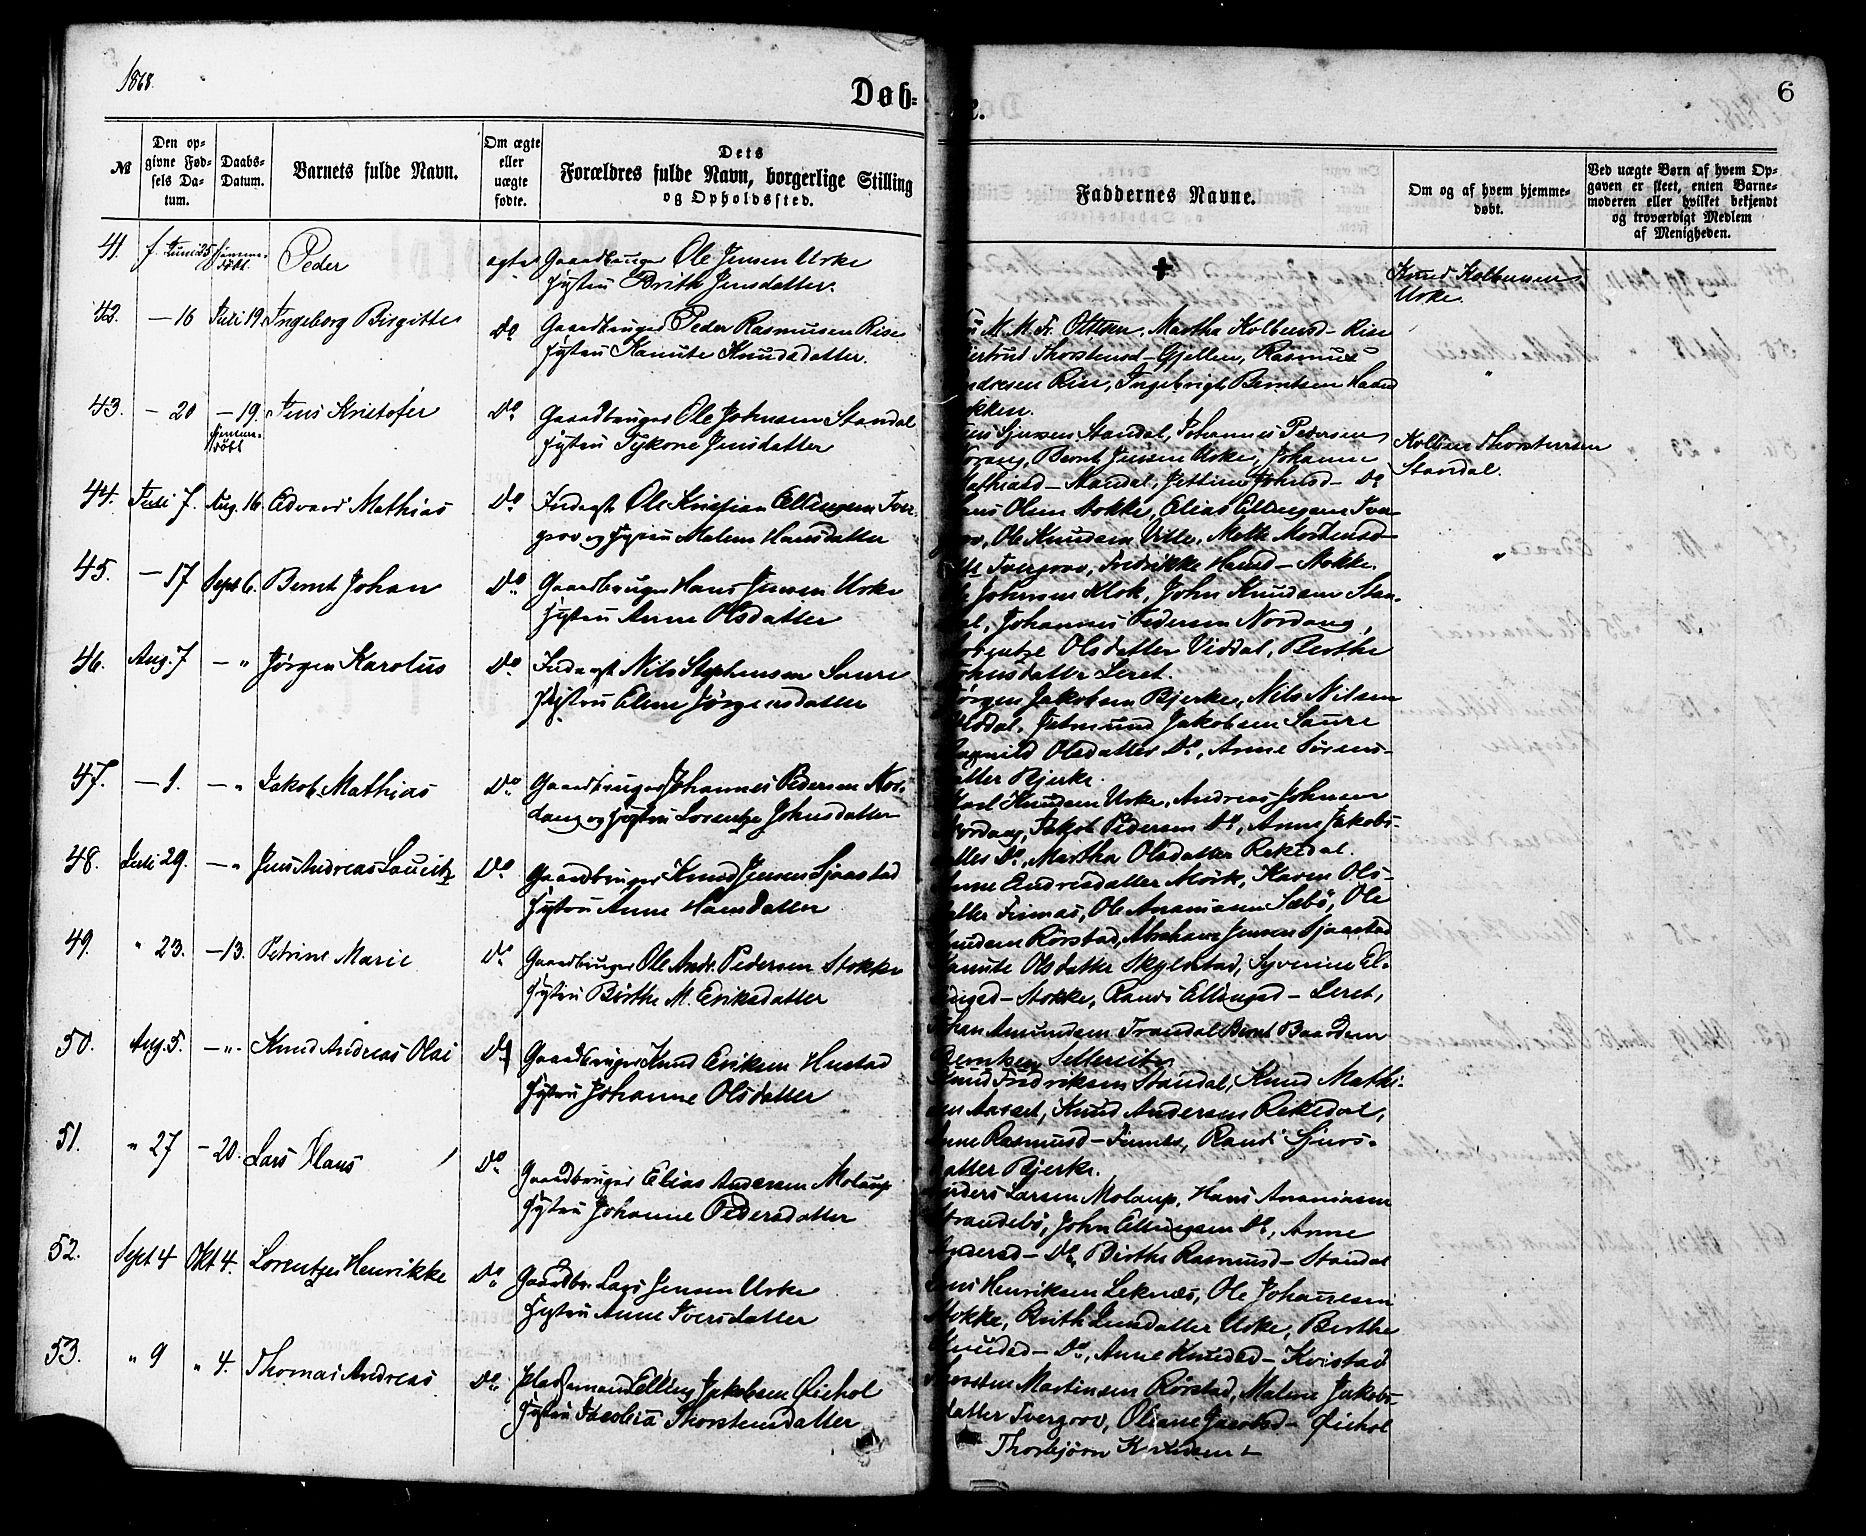 1868.
Døb-
№
Den op-
givne Fød-
sels Da-
tum.
Daabs-
Datum.
Barnets fulde Navn.
Om ægte
eller
uægte
fødte.
Dets
Forældres fulde Navn, borgerlige Stilling
og Opholdssted.
41. f. Juni 25 hjemme-
døbt Peder ægte Gaardbruger Ole Jensen Urke
Hustru Brith Jensdatter.
42. — 16 Juli 19. Ingeborg Birgitte Do Gaardbruger Peder Rasmusen Rise
Hustru Kanute Knudsdatter.
43. — 20 — 19. Jens Kristofer Do Gaardbruger Ole Johnsen Standal
hjemme-
døbt Hustru Jensdatter
44. Juli 7. Aug. 16 Edvard Mathias Do Inderst Ole Kristian Ellingsen Tver-
grov og Hustru Malene Hansdatter
45. — 17 Sept 6. Bernt Johan Do Gaardbruger Hans Jensen Urke
Hustru Anne Olsdatter
46. Aug. 7 — " Jørgen Karolus Do Inderst Nils Stephensen Saure
Hustru Elene Jørgensdatter
47. — 1. — " Jakob Mathias Do Gaardbruger Johannes Pedersen Nor-
dang og Hustru Lorentze Johnsdatter
48. Juli 29. — " Jens Andreas Lauritz Do Gaardbruger Knud Jensen Sjaastad
Hustru Anne Hansdatter
49. " 23. — 13. Petrine Marie Do Gaardbruger Ole Andr. Pedersen Stokke
Hustru Berthe M. Eriksdatter
50. Aug. 5. — " Knud Andreas Olai Do Gaardbruger Knud Eriksen Hustad
Hustru Johanne Olsdatter
51. " 27 — 20. Lars Klaus Do Gaardbruger Elias Andersen Molaup
Hustru Johanne Pedersdatter
52. Sept 4 Okt 4. Lorentze Henrikke Do Gaardbr. Lars Jensen Urke
Hustru Anne Iversdatter
53. " 9 " 4. Thomas Andreas Do Pladsemand Elling Jakobsen Øiehol
Hustru Jacobia Thorstensdatter
6
Faddernes Navne.
Om og af hvem hjemme-
døbt.
Ved uægte Børn af hvem Op-
gaven er skeet, enten Barne-
moderen eller hvilket bekjendt
og troværdigt Medlem
af Menigheden.
✝ Knud Kolbensen
Urke.
M. M. Fr. Ottesen, Martha Kolbensd— Rise
Thorstensd— Gjellen, Rasmus
Rise, Ingebrigt Berntsen Haand
okken.
Sjursen Standal, Johannes Pedersen
Bernt Jensen Urke, Johanne
Kolbein Thorstensen
Standal.
Mathiasd— Standal, Jettine Johnsd— Do
Olsen Stokke, Elias Ellingsen Tver-
Ole Knudsen Vitle, Mette Mortensd—
Tvergrov, Fredrikke Hansd— Stokke.
Johnsen Klok, John Knudsen Stan-
Johannes Pedersen Nordang,
Lorentze Olsdatter Viddal, Berthe
Johnsdatter Leret.
Jørgen Jakobsen Bjerke, Nils Nilsen
Viddal, Jakobsen Saure
Olsdatter Do, Anne Sørens-
datter Bjerke.
Karl Knudsen Urke, Andreas Johnsen
Nordang, Jakob Pedersen Do, Anne Jakobs-
datter Do, Martha Olsdatter Rekedal.
Anne Endresdatter Mork, Karen Ols-
datter Finnas, Ole Ananiasen Sæbø, Ole
Knudsen Rørstad, Abraham Jensen Sjaastad
Kanute Olsdatter Skylstad, Syverine El-
lingsd— Stokke, Randi Ellingsd— Leret,
Johan Amundsen Trandal Bernt Baardsen
Sætereite
Knud Fredriksen Standal, Knud Mathi-
sen Aarset, Knud Andersen Rekedal,
Anne Rasmusd— Finnes, Randi Sjurs-
datter Bjerke.
Anders Larsen Molaup, Hans Ananiasen
Strandebø, John Ellingsen Do, Anne
Andersd— Do, Birthe Rasmusd— Standal
Jens Henriksen Leknæs, Ole Johannesen
Stokke, Brith Jensdatter Urke, Berthe
Knudsd— Do, Anne Knudsd— Kvistad
Thorsten Martinsen Rørstad, Malene Jakobs-
datter Tvergrov, Oliane Jacobsd— Øiehol
Thorbjørn